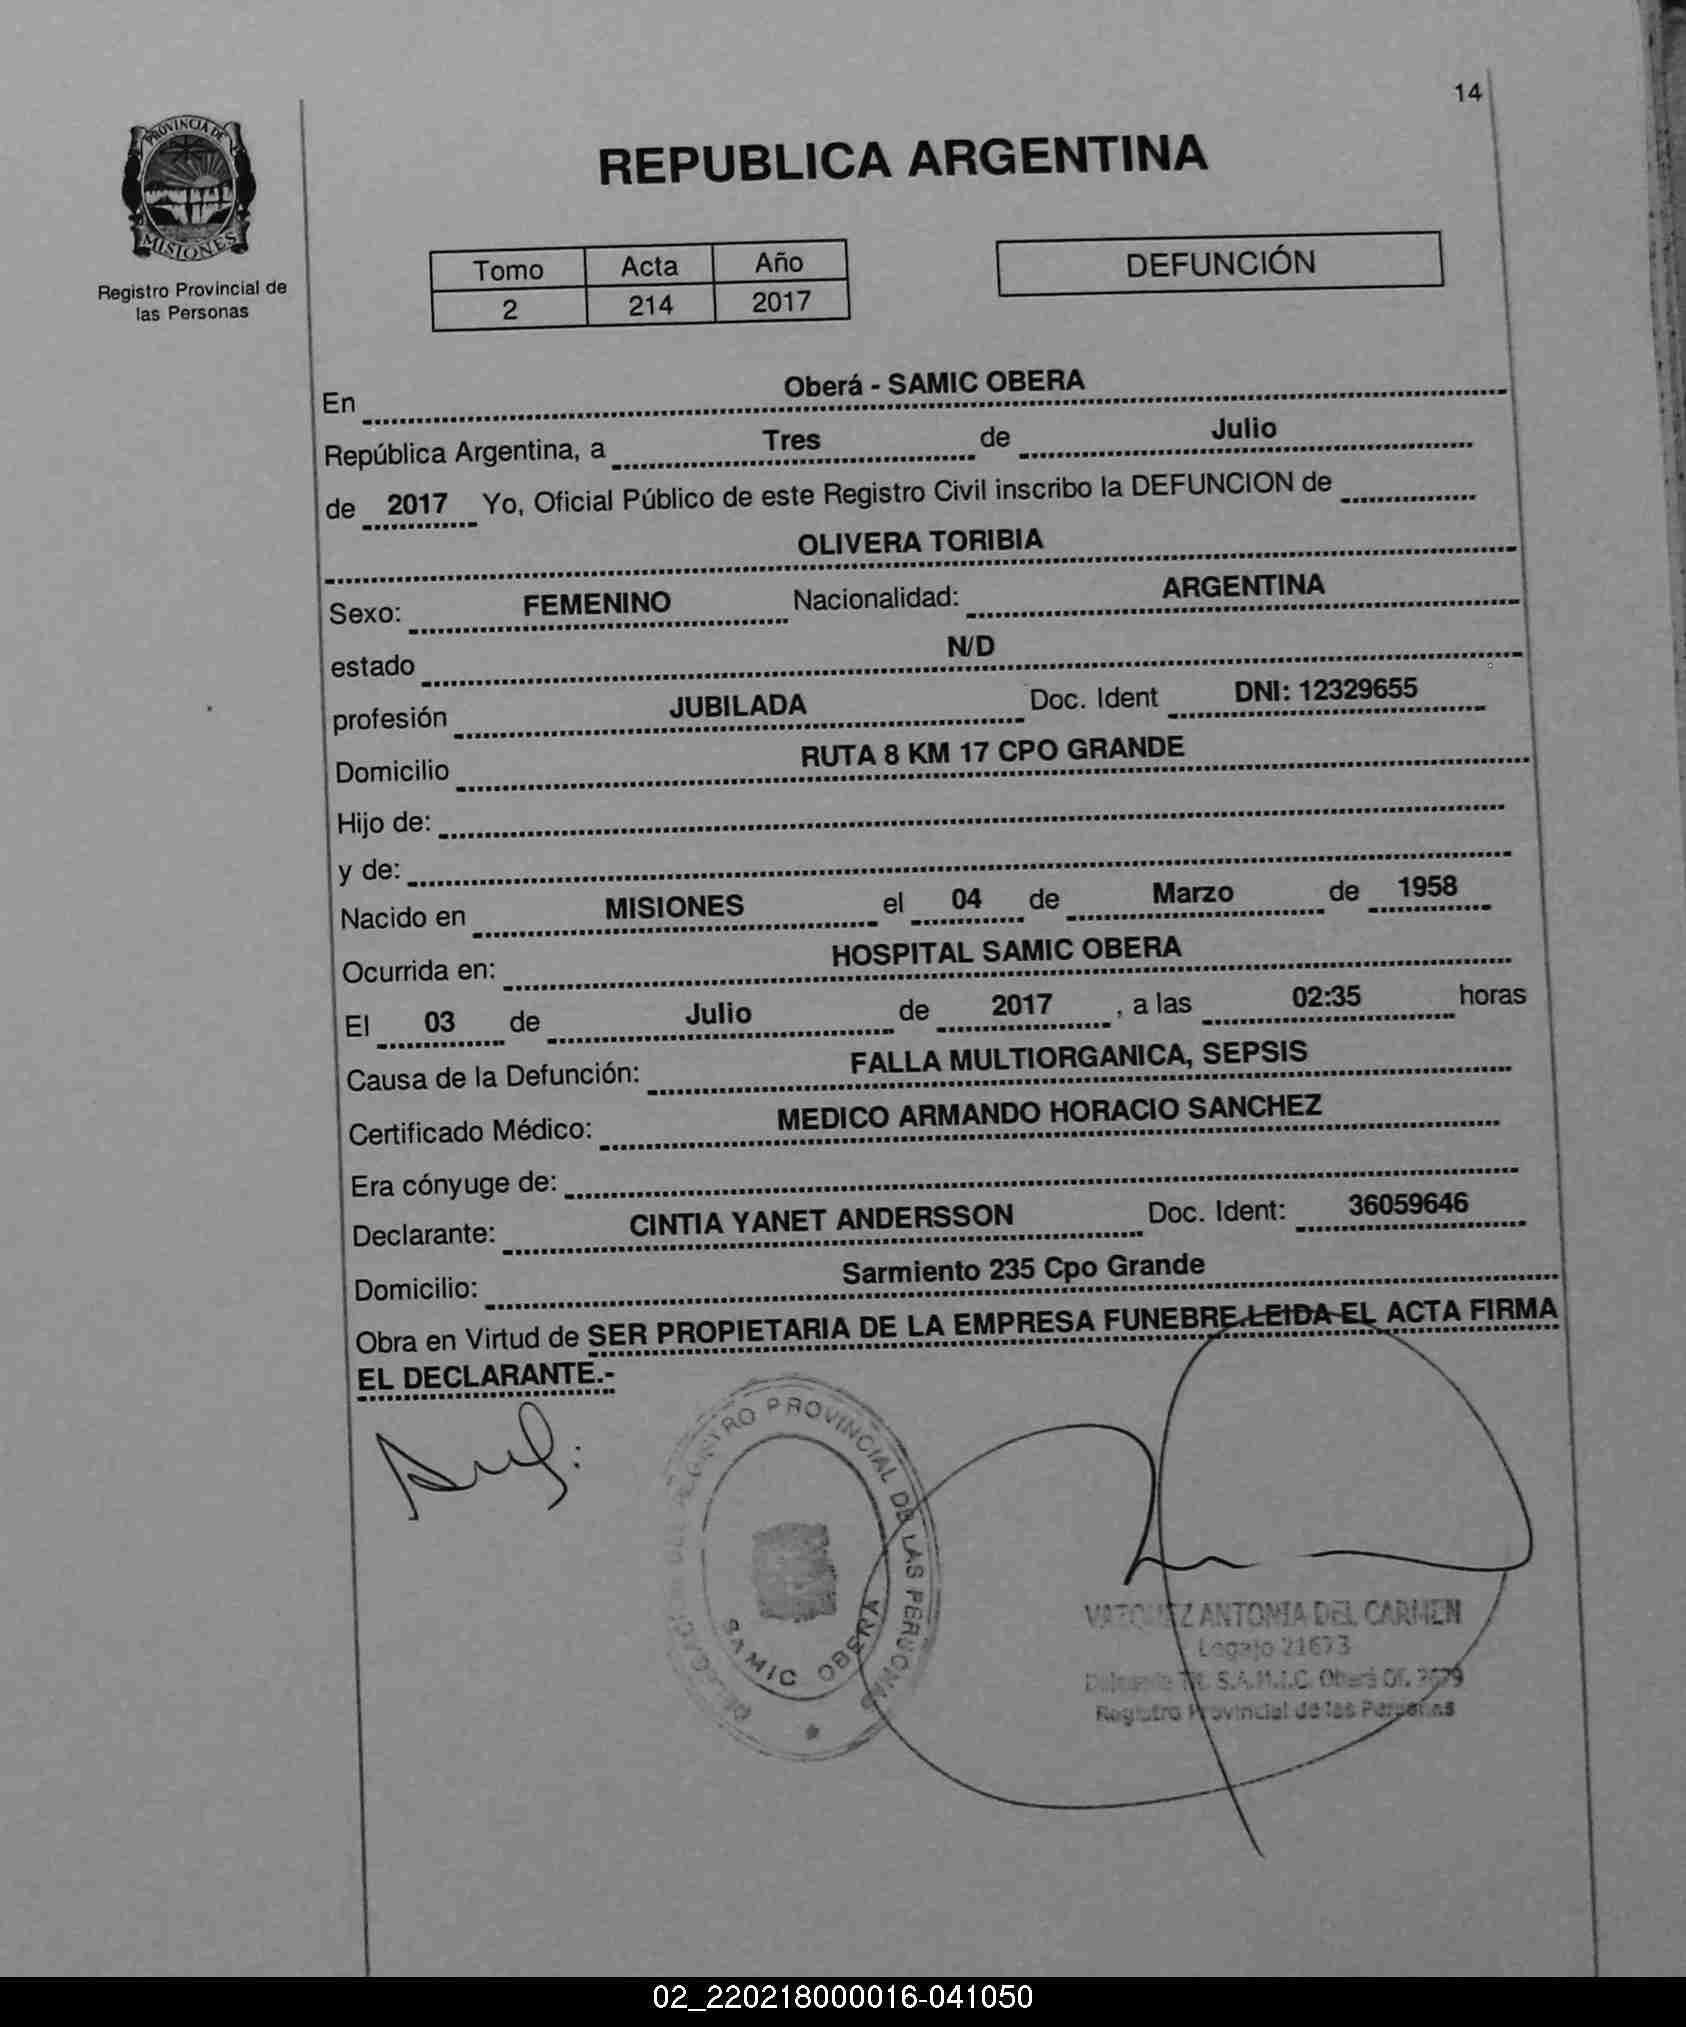 14
PROVINCIA DE
MISIONES
Registro Provincial de
las Personas
REPUBLICA ARGENTINA
Tomo Acta Año
2 214 2017
DEFUNCIÓN
En Oberá - SAMIC OBERA
República Argentina, a Tres de Julio
de 2017 Yo, Oficial Público de este Registro Civil inscribo la DEFUNCION de
OLIVERA TORIBIA
Sexo: FEMENINO Nacionalidad: ARGENTINA
estado N/D
profesión JUBILADA Doc. Ident DNI: 12329655
Domicilio RUTA 8 KM 17 CPO GRANDE
Hijo de:
y de:
Nacido en MISIONES el 04 de Marzo de 1958
Ocurrida en: HOSPITAL SAMIC OBERA
El 03 de Julio de 2017 , a las 02:35 horas
Causa de la Defunción: FALLA MULTIORGANICA, SEPSIS
Certificado Médico: MEDICO ARMANDO HORACIO SANCHEZ
Era cónyuge de:
Declarante: CINTIA YANET ANDERSSON Doc. Ident: 36059646
Domicilio: Sarmiento 235 Cpo Grande
Obra en Virtud de SER PROPIETARIA DE LA EMPRESA FUNEBRE.LEIDA EL ACTA FIRMA
EL DECLARANTE.-
PROVINCIAL DE LAS PERSONAS
SAMIC OBERA
ANTONIA DEL CARMEN
Legajo 21673
S.A.M.I.C. Oberá Of.
Registro Provincial de las Personas
02_220218000016-041050